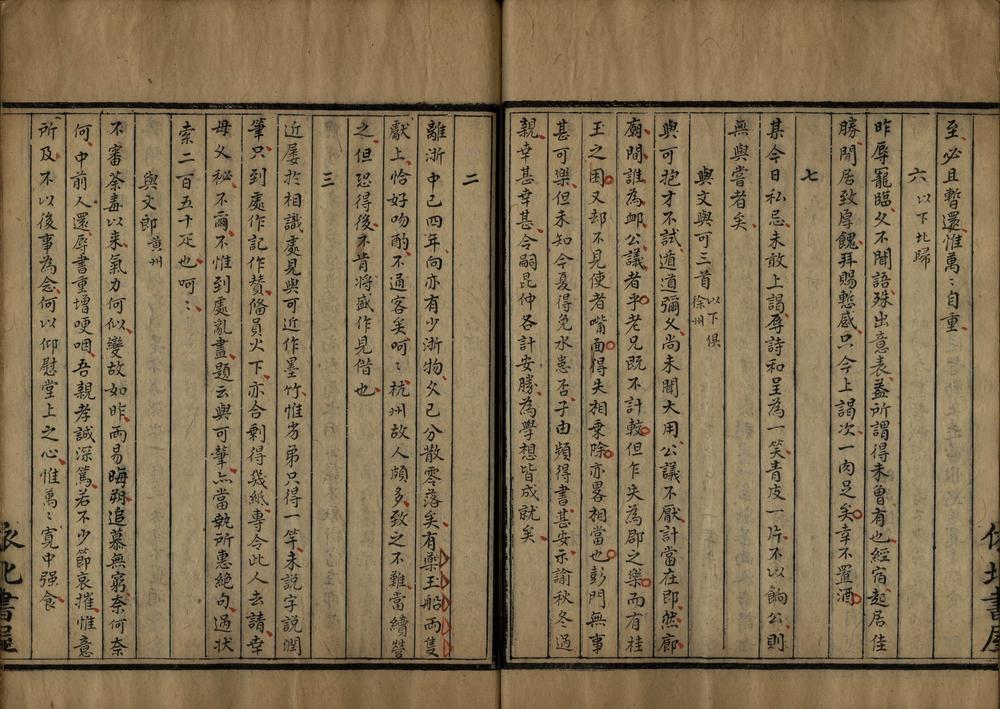 至必且暫還惟萬〻自重
六 以下北歸
昨辱寵臨久不聞語殊出意表蓋所謂得未曾有也經宿起居佳
勝閒居致厚餽拜賜慙感只今上謁次一肉足矣幸不置酒
七
某今日私忌未敢上謁辱詩和呈為一笑青皮一片不以餉公則
無與嘗者矣
與文與可三首 以下俱徐州
與可抱才不試逌道彌久尚未聞大用公議不厭計當在即然廊
廟間誰為卹公議者乎老兄既不計較但乍失為郡之樂而有桂
玉之困又却不見使者嘴面得失相乗除亦畧相當也彭門無事
甚可樂但未知今夏得免水患否子由頻得書甚安示諭秋冬過
親幸甚幸甚令嗣昆仲各計安勝為學想皆成就矣
二
離浙中已四年向亦有少浙物久已分散零落矣有藥玉船兩隻
獻上恰好吻酌不通客矣呵〻杭州故人頗多致之不難當續營
之但恐得後不肯將盛作見借也
三
近屡於相識處見與可近作墨竹惟劣弟只得一竿未説字説潤
筆只到處作記作贊偹員火下亦合剩得幾紙專令此人去請幸
毋久秘不爾不惟到處亂畫題云與可筆亦當執所惠絶句過狀
索二百五十疋也呵〻
與文郎 黄州
不審荼毒以来氣力何似變故如昨兩易晦朔追慕無窮奈何奈
何中前人還辱書重增哽咽吾親孝誠深篤若不少節哀摧惟意
所及不以後事為念何以仰慰堂上之心惟萬〻寛中强食